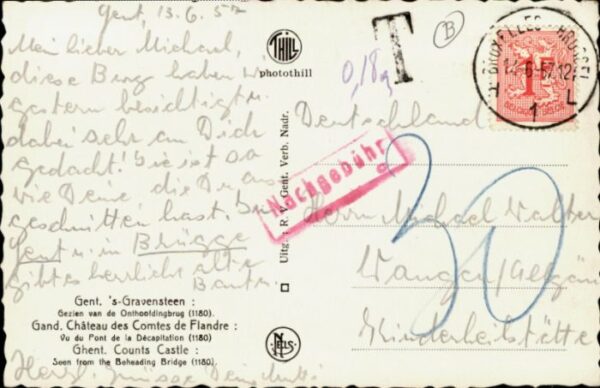 Gent, 13.6.57
Mein lieber Michael,
diese Burg haben wir
gestern besichtigt u.
dabei sehr an Dich
gedacht! Sie ist so
wie Deine die Du
geschnitten hast. In
Gent u. in Brügge
gibt es herrliche alte
Bauten.
Gent, 's-Gravensteen :
Gezien van de Onthoofdingbrug (1180).
Gand, Château des Comtes de Flandre :
Vu du Pont de la Décapitation (1180)
Ghent, Counts Castle :
Seen from the Beheading Bridge (1180).
Herzl. Grüsse Dein
THILL
photothill
Uitg. : R. V. Gent. Verb. Nadr.
NELS
T
B
0,18
BRUXELLES BRUSSEL
14-6-57 12
1 L
1F
Nachgebühr
30
Deutschland
Herrn Michael Walter
Wangen/Allgäu
Kinderheilstätte